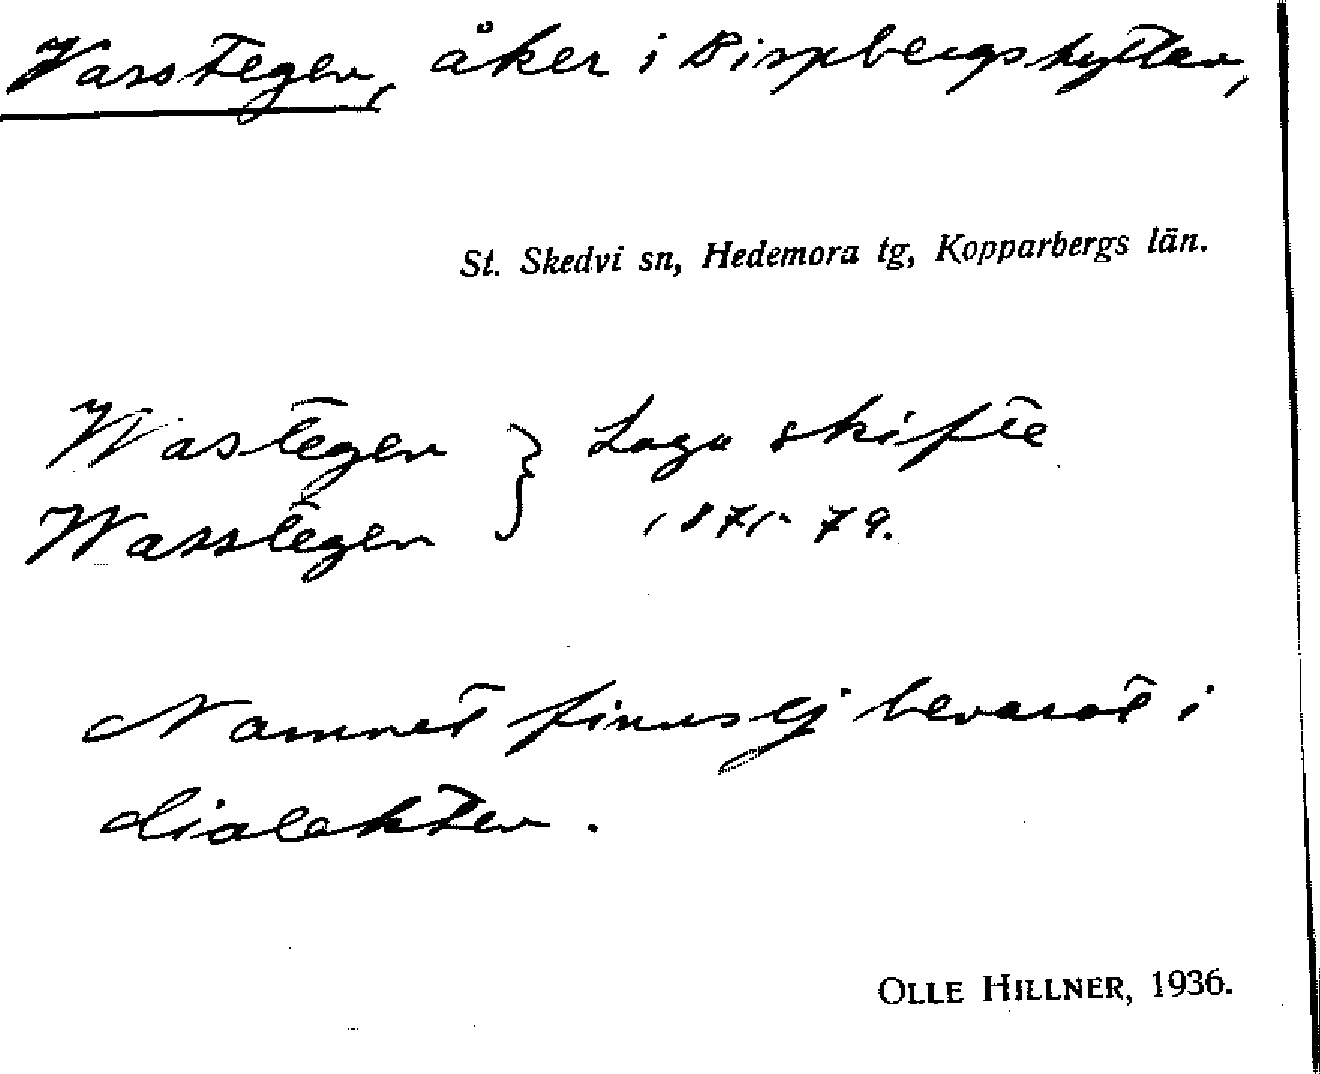 Vasstegen, åker i Bispbergshyttan,
St. Skedvi sn, Hedemora tg, Kopparbergs län.
Wastegen } Laga skifte
Wasstegen 1871-79.
Namnet finns ej bevarat i
dialekten.
OLLE HILLNER, 1936.